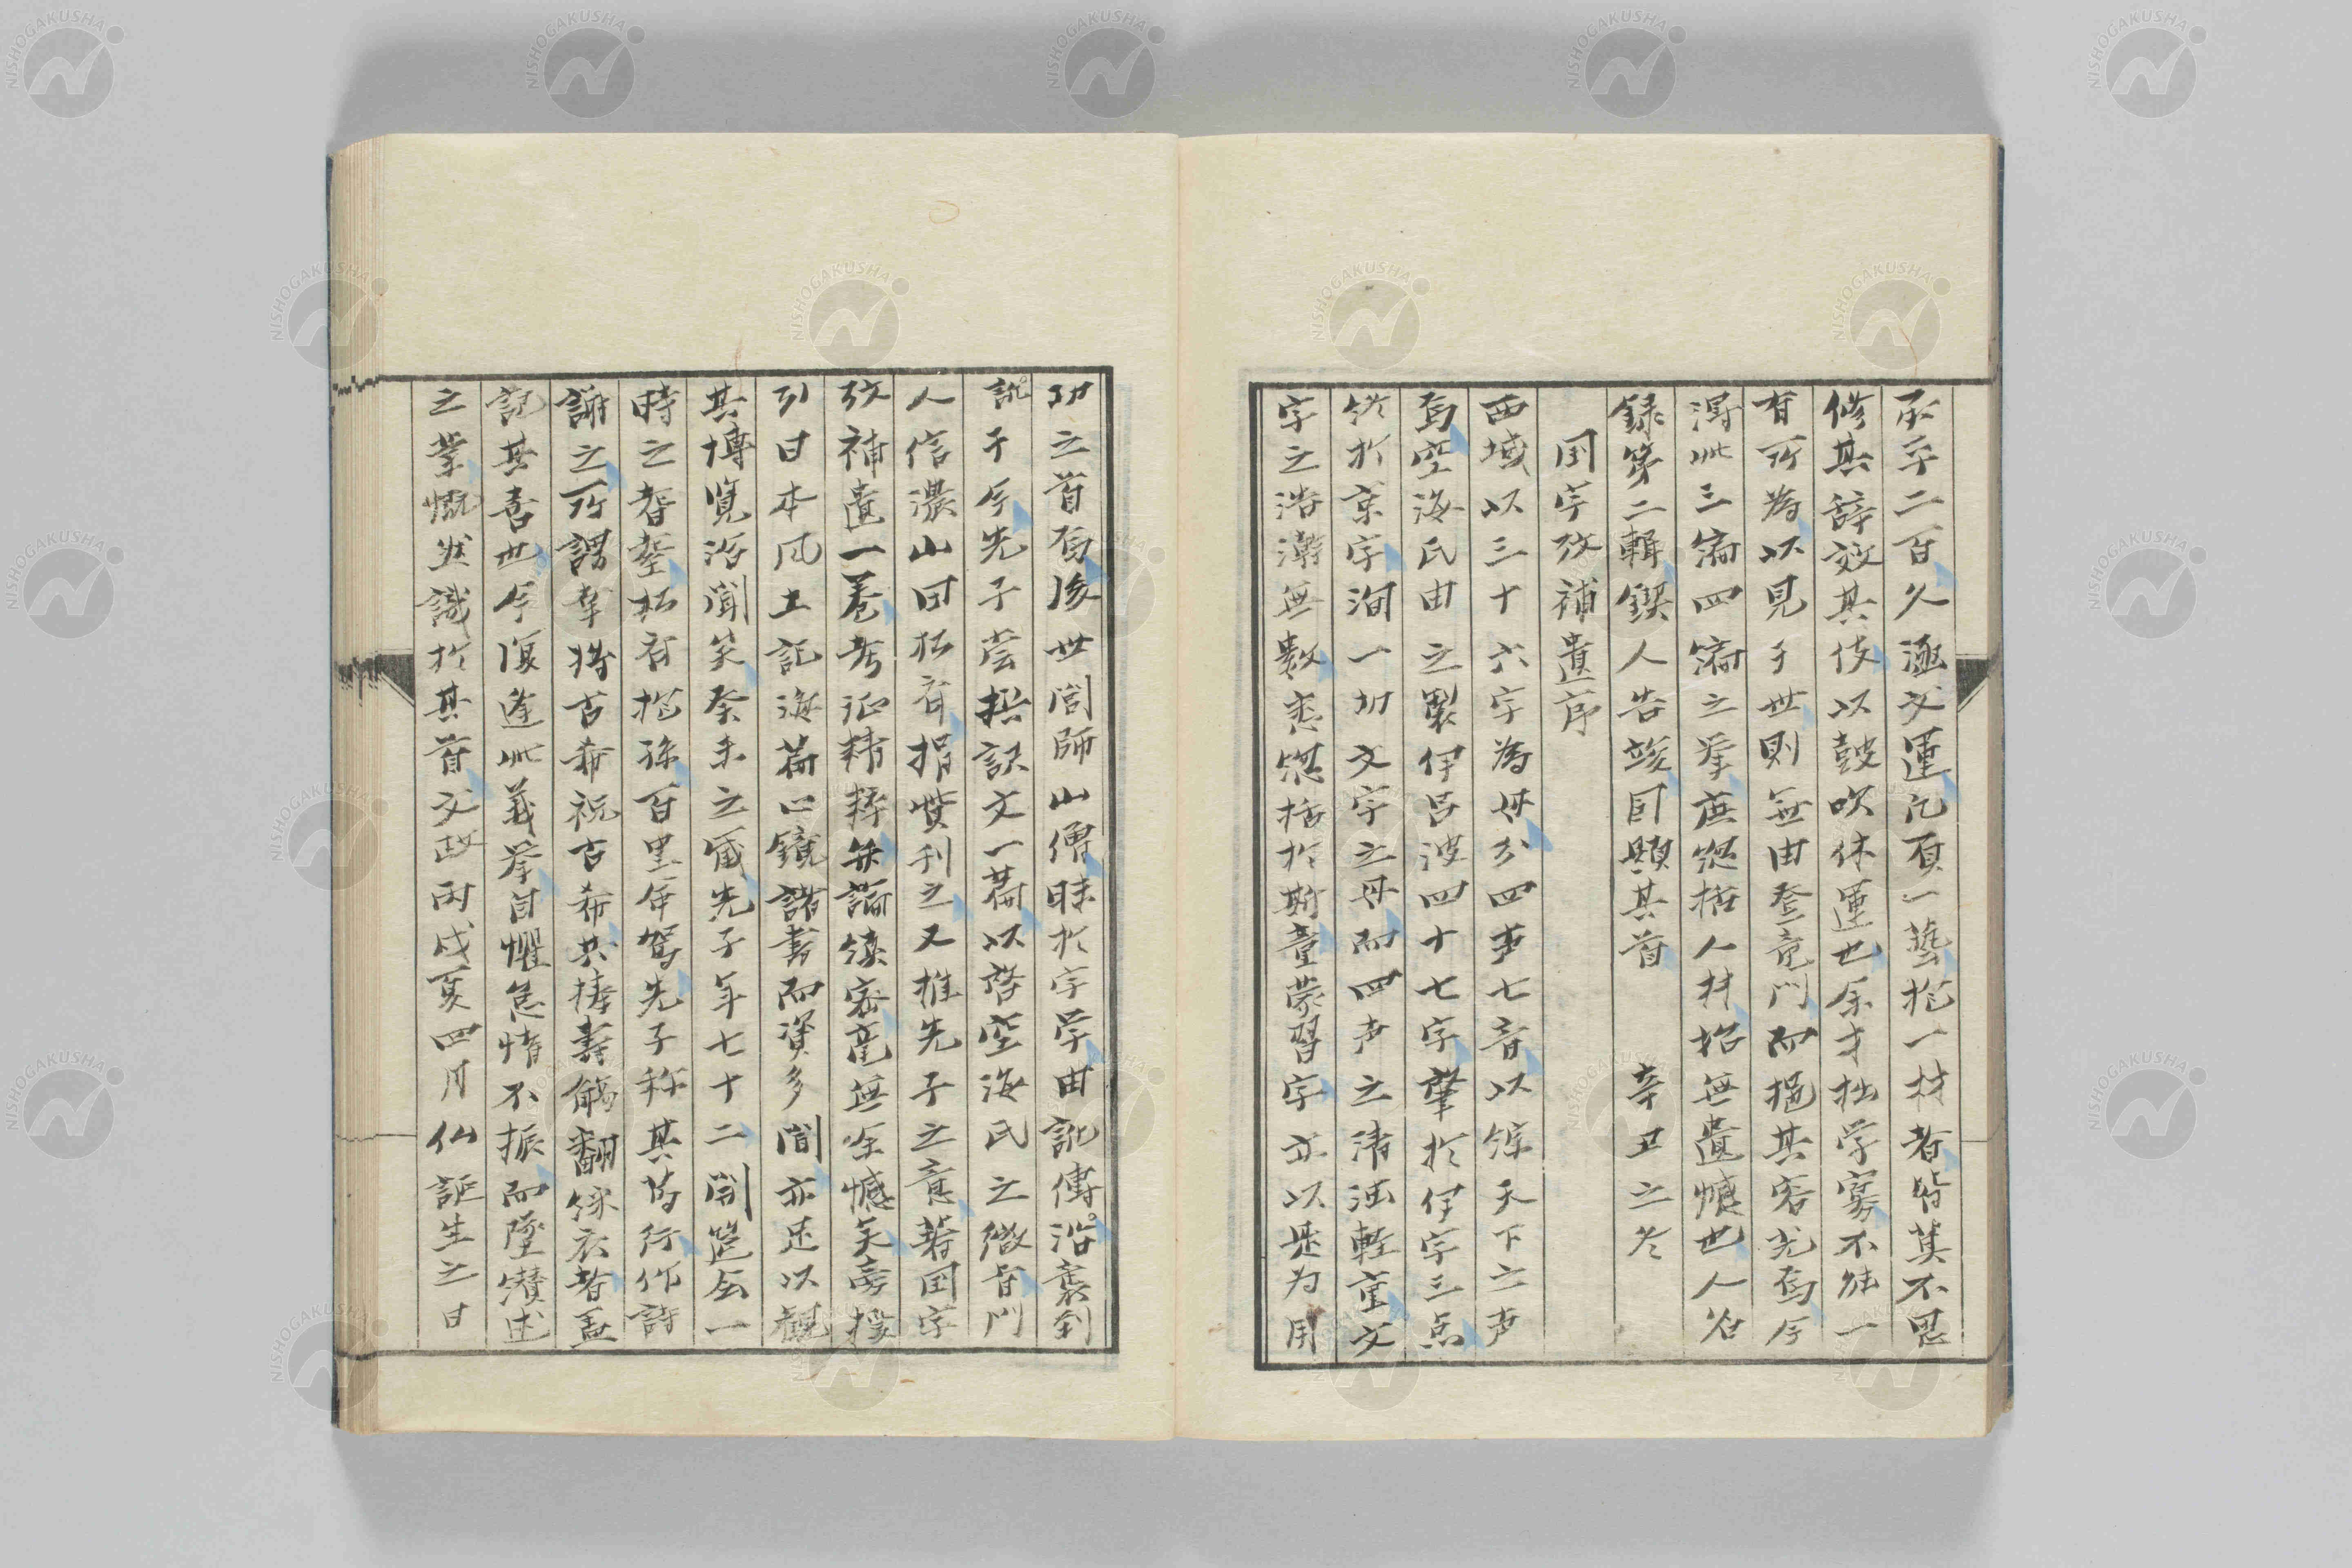 承平二百久涵文運凡一藝抱一材者皆莫不思
修其辞效其伎以鼓吹休運也余才拙学寡不能一
有所為以見于世則無由登竜門而挹其容光焉今
得此三編四編之挙庶㨿括人材招無遺憾也人名
録第二輯鍥人告竣因題其首 辛丑之冬
国字攷補遺序
西域以三十六字為母分四声七音以綜天下之声
焉空海氏由之製伊呂波四十七字肇於伊字三点
終於京字洵一切文字之母而四声之清濁軽重文
字之浩瀚無数悉括於斯童蒙習字亦以是为用
功之首焉後世閭師山僧昧於字学由訛傳沿襲到
訛于今先子嘗撰訳文一篇以啓空海氏之微旨門
人信濃山田松斎捐貲刊之又推先子之意著国字
攷補遺一巻考证精粹弁論縝密毫無余憾矣旁援
引日本风土記海篇心鏡諸書而資多聞亦足以観
其博覧洽聞矣癸未之歳先子年七十二開筵会一
時之耆松斎抱孫百里命駕先子称其篤行作詩
謝之所謂幸将古希祝古希共捧壽觴翻綵衣者盖
記其喜也今復逢此義挙自懼怠惰不振而墜述
之業慨然識於其首文政丙戌夏四月仏誕生之日
NISHOGAKUSHA